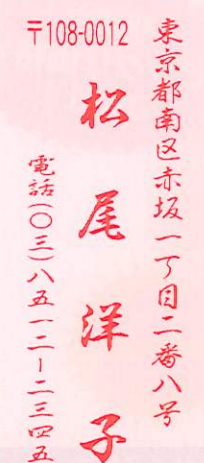 〒108-0012
東京都南区赤坂一丁目二番八号
松尾洋子
電話(〇三)八五一二ー二三四五